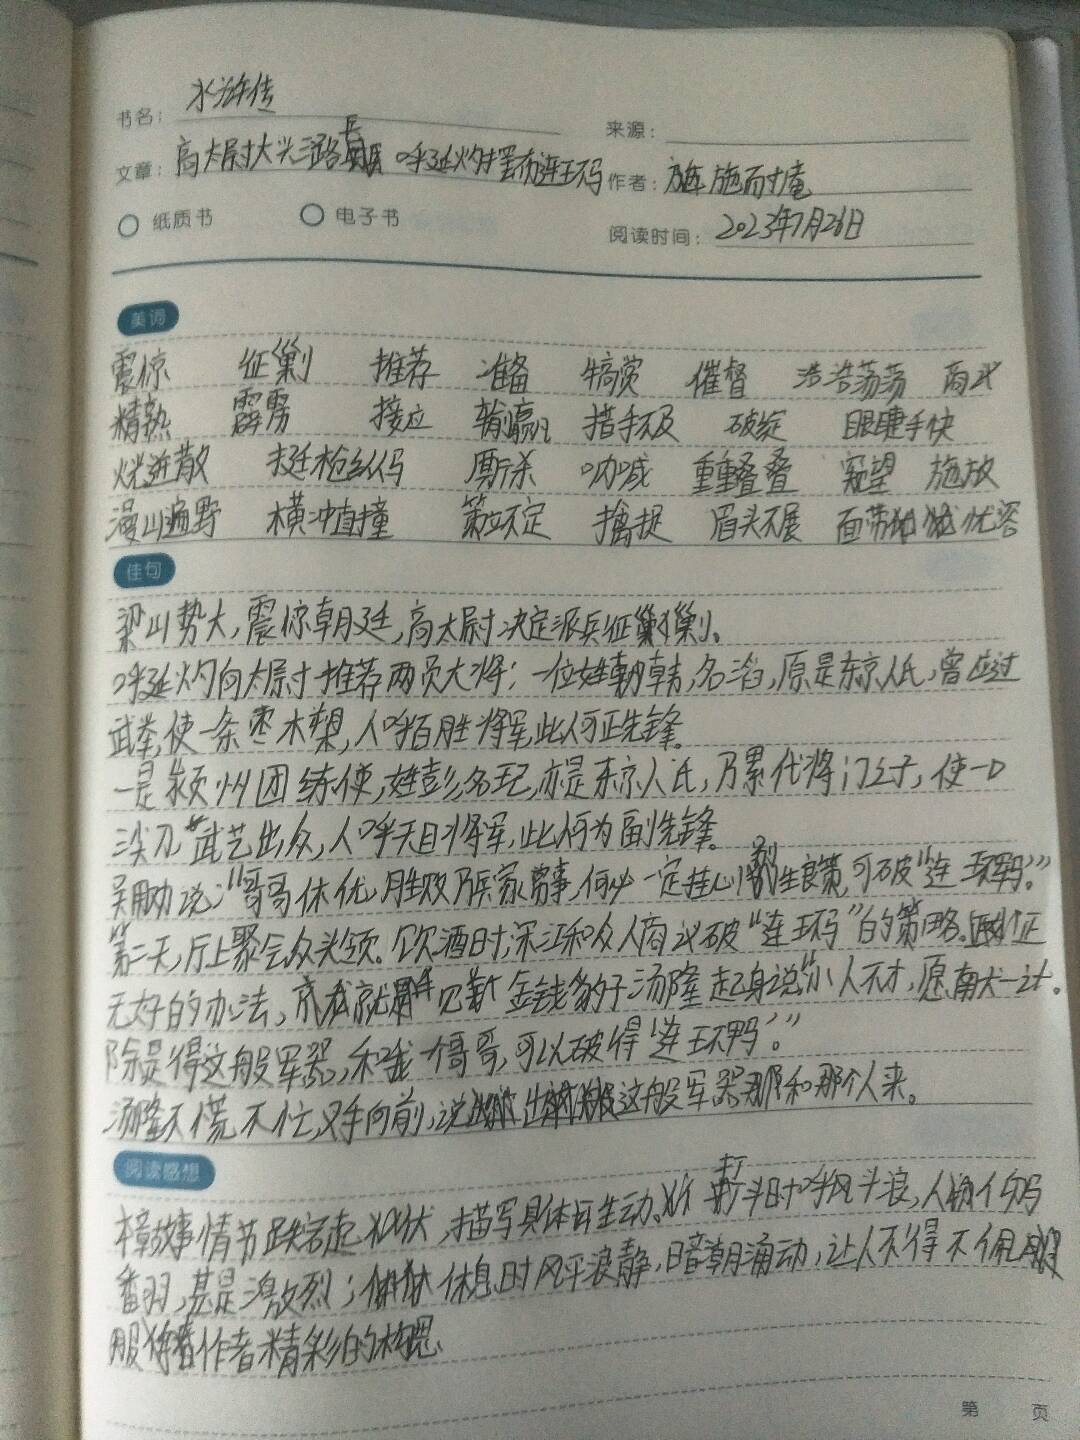 书名： 水浒传
来源：
文章： 高太尉大兴三路兵 呼延灼摆布连环马
作者： 施耐庵
纸质书 电子书
阅读时间： 2023年7月26日
美词
震惊 征剿 推荐 准备 犒赏 催督 浩浩荡荡 商议
精熟 霹雳 接应 输赢 措手不及 破绽 眼睫手快
火光迸散 挺枪纵马 厮杀 呐喊 重重叠叠 窥望 施放
漫山遍野 横冲直撞 策立不定 擒捉 眉头不展 面带忧容
佳句
梁山势大，震惊朝廷，高太尉决定派兵征剿。
呼延灼向太尉推荐两员大将：一位姓韩，名滔，原是东京人氏，曾应过
武举，使一条枣木槊，人呼百胜将军，此人可正先锋。
一是颍州团练使，姓彭名玘，亦是东京人氏，乃累代将门之子，使一口
尖刀，武艺出众，人呼天目将军，此人可为副先锋。
吴用劝说："哥哥休忧，胜败乃兵家常事，何必一定挂心？别生良策，可破"连环马"。"
第二天，厅上聚会众头领。饮酒时，宋江和众人商议破"连环马"的策略。正
无好的办法，只见 金钱豹子汤隆起身说"小人不才，愿献一计。
除是得这般军器，和我一个哥哥，可以破得'连环马'。"
汤隆不慌不忙，叉手向前，说出这般军器和那个人来。
阅读感想
本章故事情节跌宕起伏，描写具体且生动。打斗时呼风斗浪，人仰马
翻，甚是激烈；休息时风平浪静，暗潮涌动，让人不得不佩
服作者精彩的构思。
第 页